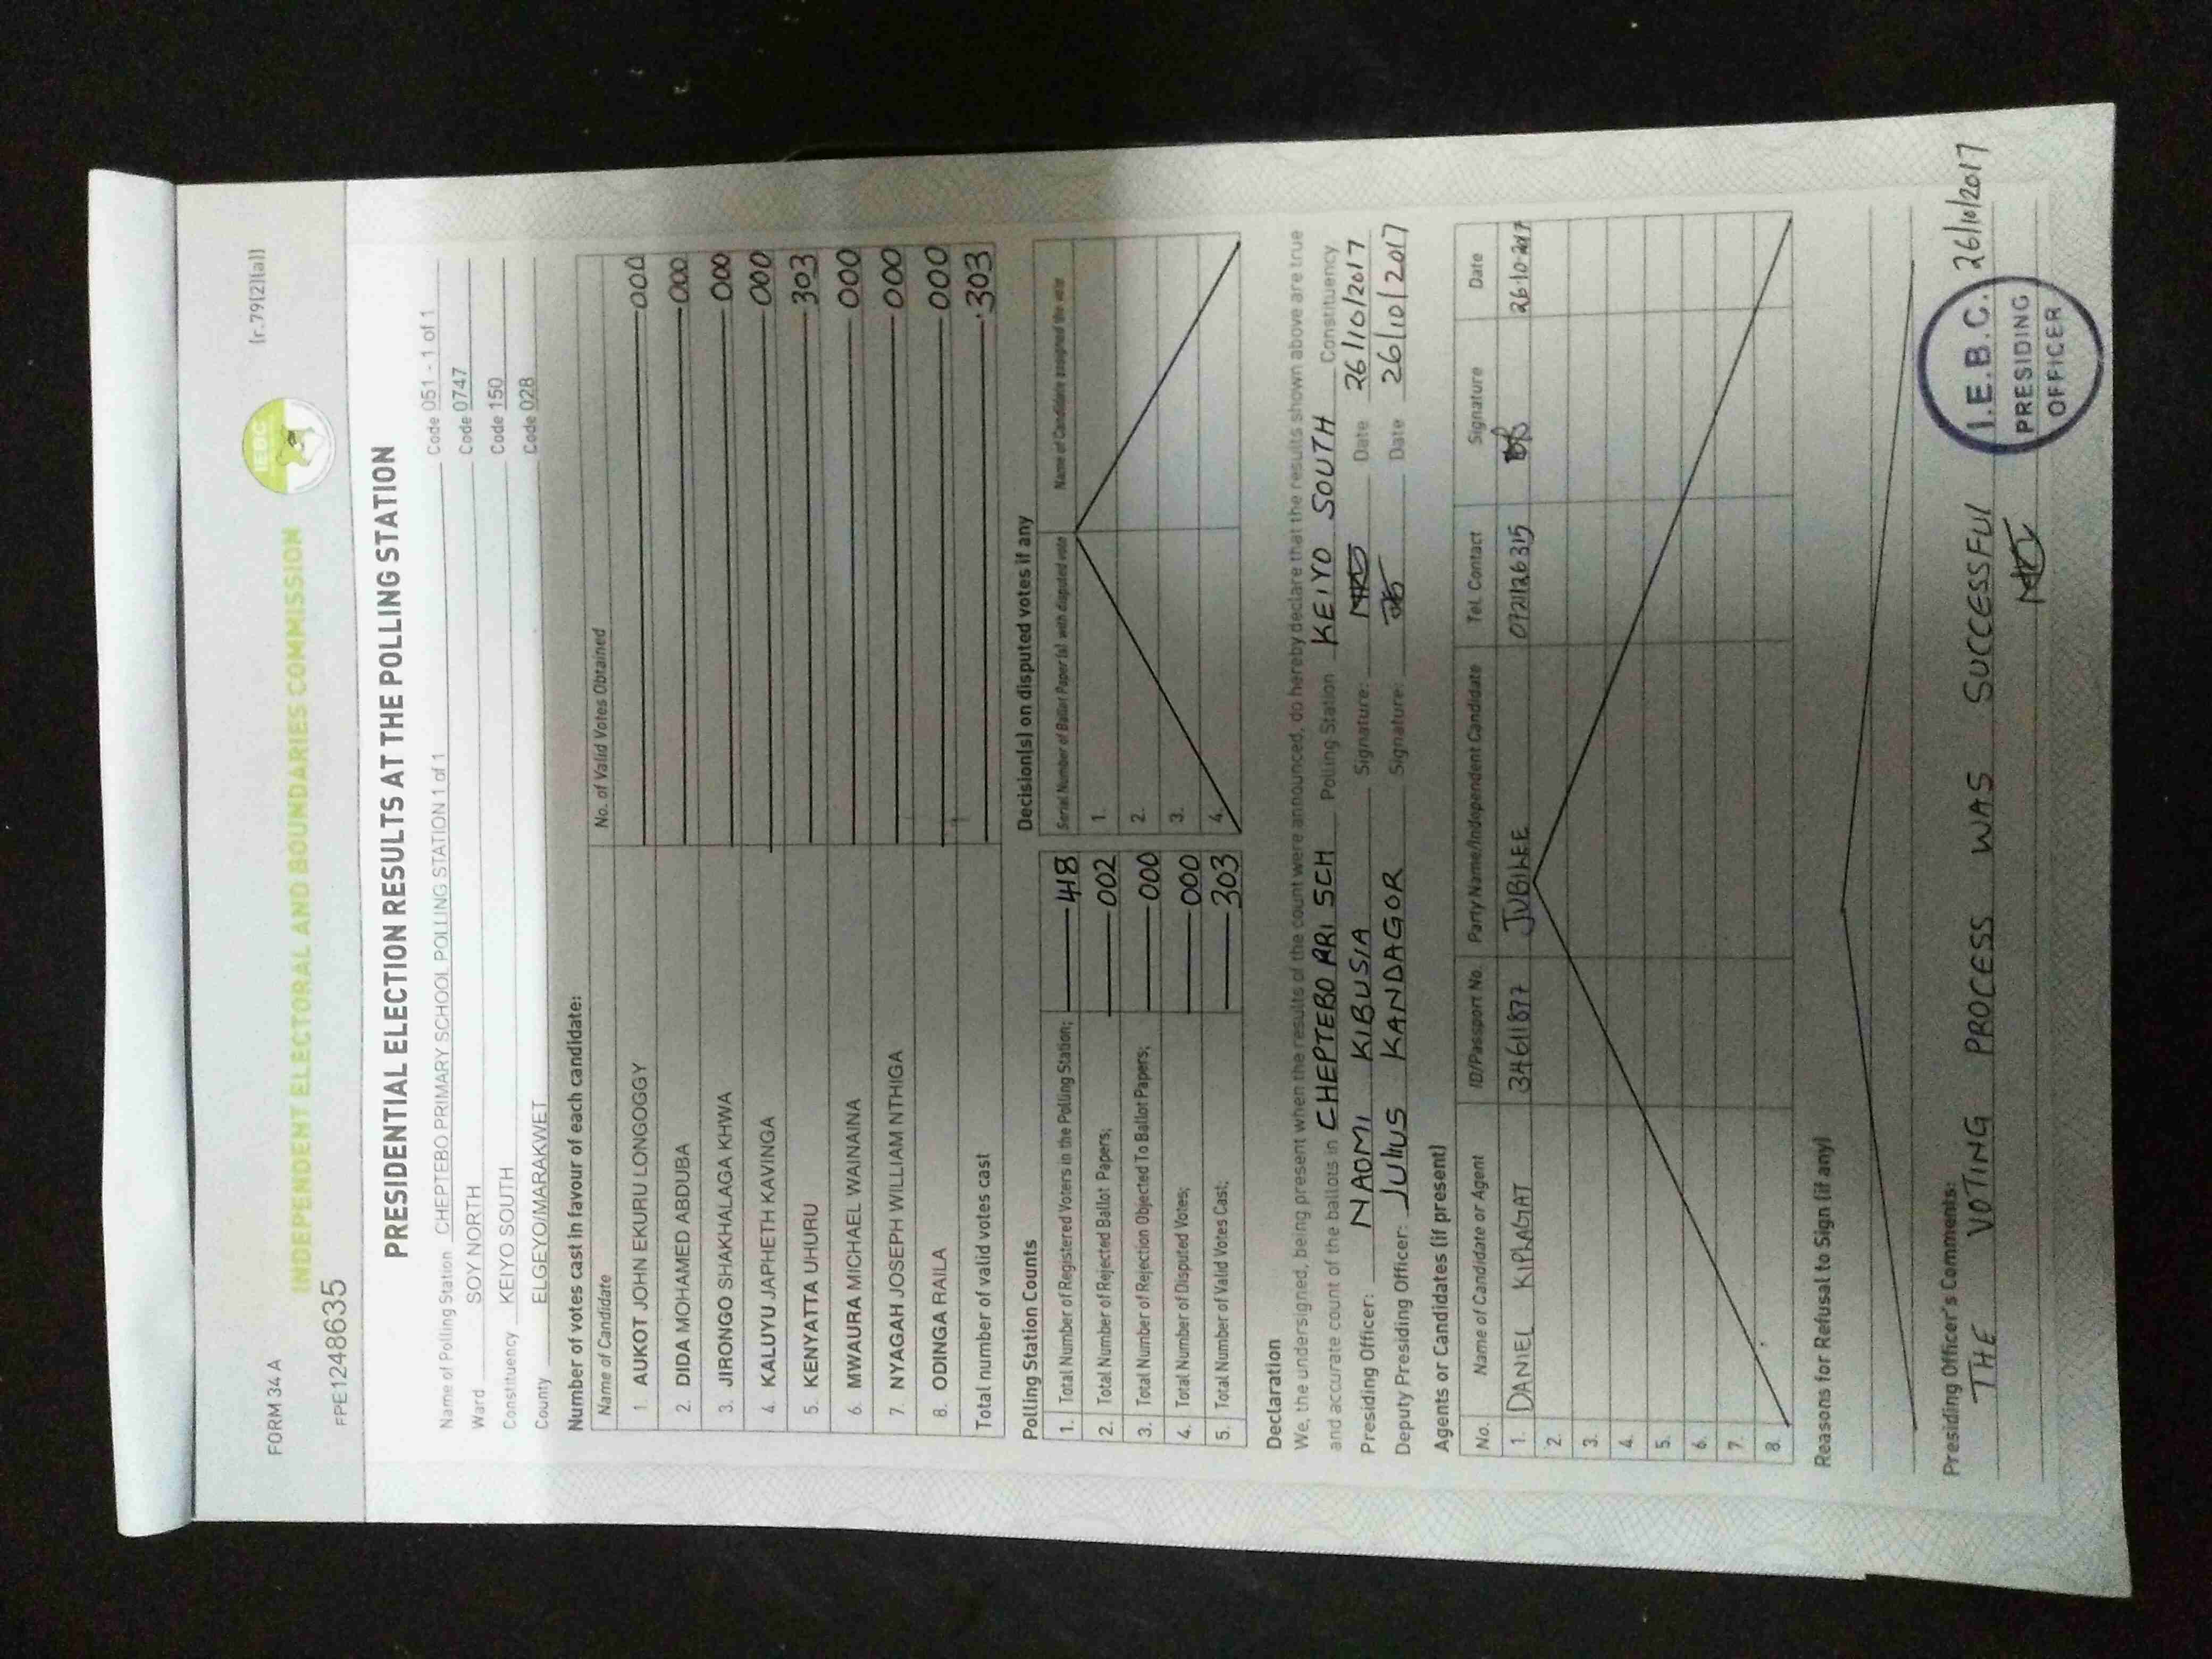 FORM 34 A
(r.79(2)(a))
INDEPENDENT ELECTORAL AND BOUNDARIES COMMISSION
IEBC
FPE1248635
PRESIDENTIAL ELECTION RESULTS AT THE POLLING STATION
Name of Polling Station CHEPTEBO PRIMARY SCHOOL POLLING STATION 1 of 1 Code 051 - 1 of 1
Ward SOY NORTH Code 0747
Constituency KEIYO SOUTH Code 150
County ELGEYO/MARAKWET Code 028
Number of votes cast in favour of each candidate:
Name of Candidate No. of Valid Votes Obtained
1. AUKOT JOHN EKURU LONGOGGY 000
2. DIDA MOHAMED ABDUBA 000
3. JIRONGO SHAKHALAGA KHWA 000
4. KALUYU JAPHETH KAVINGA 000
5. KENYATTA UHURU 303
6. MWAURA MICHAEL WAINAINA 000
7. NYAGAH JOSEPH WILLIAM NTHIGA 000
8. ODINGA RAILA 000
Total number of valid votes cast 303
Polling Station Counts
1. Total Number of Registered Voters in the Polling Station; 418
2. Total Number of Rejected Ballot Papers; 002
3. Total Number of Rejection Objected To Ballot Papers; 000
4. Total Number of Disputed Votes; 000
5. Total Number of Valid Votes Cast; 303
Decision(s) on disputed votes if any
Serial Number of Ballot Paper (s) with disputed vote Name of Candidate assigned the vote
1.
2.
3.
4.
Declaration
We, the undersigned, being present when the results of the count were announced, do hereby declare that the results shown above are true
and accurate count of the ballots in CHEPTEBO PRI SCH Polling Station KEIYO SOUTH Constituency
Presiding Officer: NAOMI KIBUSIA Signature: Date 26/10/2017
Deputy Presiding Officer: JULIUS KANDAGOR Signature: Date 26/10/2017
Agents or Candidates (if present)
No. Name of Candidate or Agent ID/Passport No. Party Name/Independent Candidate Tel. Contact Signature Date
1. DANIEL KIPLAGAT 34611877 JUBILEE 0721126315 26.10.2017
2.
3.
4.
5.
6.
7.
8.
Reasons for Refusal to Sign (if any)
Presiding Officer's Comments:
THE VOTING PROCESS WAS SUCCESSFUL 26/10/2017
I.E.B.C.
PRESIDING
OFFICER